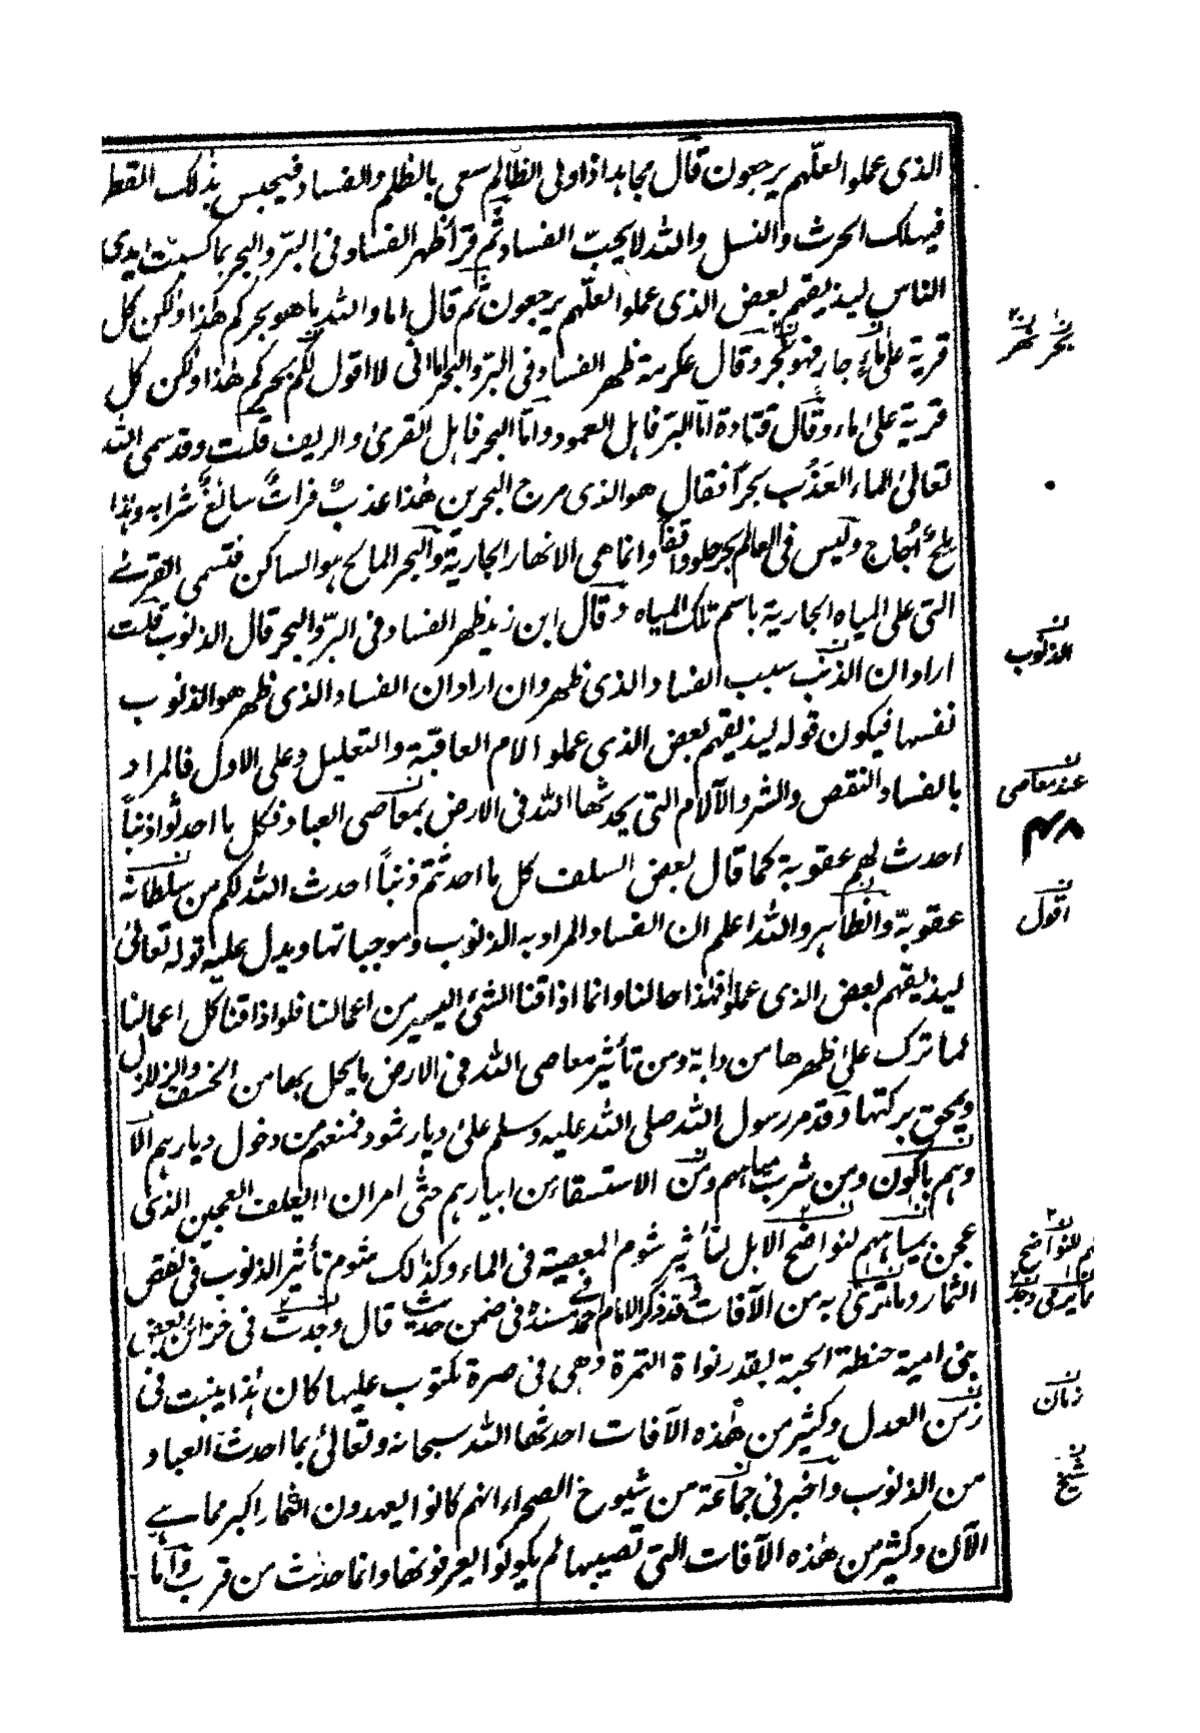 الذى عملوا لعلّهم يرجعون قال مجاهد اذا ولى الظالم سعى بالظلم والفساد فيحبس بذلك القطر
فيهلك الحرث والنسل والله لا يحبّ الفساد ثم قرأ ظهر الفساد فى البرّ والبحر بما كسبت ايدى
الناس ليذيقهم بعض الذى عملوا لعلّهم يرجعون ثم قال اما والله ما هو بحركم هذا ولكن كل
قرية على ماء جار فهو بحر وقال عكرمة ظهر الفساد فى البرّ والبحر اما انى لا اقول لكم بحركم هذا ولكن كل
قرية على ماء وقال قتادة امّا البرّ فاهل العمود وامّا البحر فاهل القرى والريف قلت وقد سمى الله
تعالى الماء العذب بحراً فقال هو الذى مرج البحرين هذا عذبٌ فراتٌ سائغٌ شرابه وهذا
ملحٌ اُجاج وليس فى العالم بحر حلو واقفاً وانما هى الانهار الجارية والبحر المالح هو الساكن فتسمى القرى
التى على المياه الجارية باسم تلك المياه وقال ابن زيد ظهر الفساد فى البرّ والبحر قال الذنوب قلت
اراد ان الذنب سبب الفساد الذى ظهر وان اراد ان الفساد الذى ظهر هو الذنوب
نفسها فيكون قوله ليذيقهم بعض الذى عملوا لام العاقبة والتعليل وعلى الاول فالمراد
بالفساد النقص والشر والآلام التى يحدثها الله فى الارض بمعاصى العباد فكل ما احدثوا ذنباً
احدث لهم عقوبة كما قال بعض السلف كل ما احدثتم ذنباً احدث الله لكم من سلطانه
عقوبة والظاهر والله اعلم ان الفساد المراد به الذنوب وموجباتها ويدل عليه قوله تعالى
ليذيقهم بعض الذى عملوا فهذا حالنا وانما اذاقنا الشئ اليسير من اعمالنا فلو اذاقنا كل اعمالنا
لما ترك على ظهرها من دابة ومن تأثير معاصى الله فى الارض ما يحل بها من الخسف والزلازل
ويمحق بركتها وقد مر رسول الله صلى الله عليه وسلم على ديار ثمود فمنعهم من دخول ديارهم الا
وهم باكون ومن شرب مياههم ومن الاستسقاء من ابيارهم حتى امر ان يعلف العجين الذى
عجن بمياههم لنواضح الابل لتأثير شوم المعصية فى الماء وكذلك شوم تأثير الذنوب فى نقص
الثمار وما ترى به من الآفات وقد ذكر الامام احمد فى مسنده فى ضمن حديث قال وجدت فى خزائن بعض
بنى امية حنطة الحبة بقدر نواة التمرة وهى فى صرة مكتوب عليها كان هذا ينبت فى
زمن العدل وكثير من هذه الآفات احدثها الله سبحانه وتعالى بما احدث العباد
من الذنوب واخبرنى جماعة من شيوخ الصحراء انهم كانوا يعهدون الثمار اكبر مما هى
الآن وكثير من هذه الآفات التى تصيبها لم يكونوا يعرفونها وانما حدثت من قرب واما
بحر بحر
الذنوب
عند معاصى
اقول
للنواضح
زمان